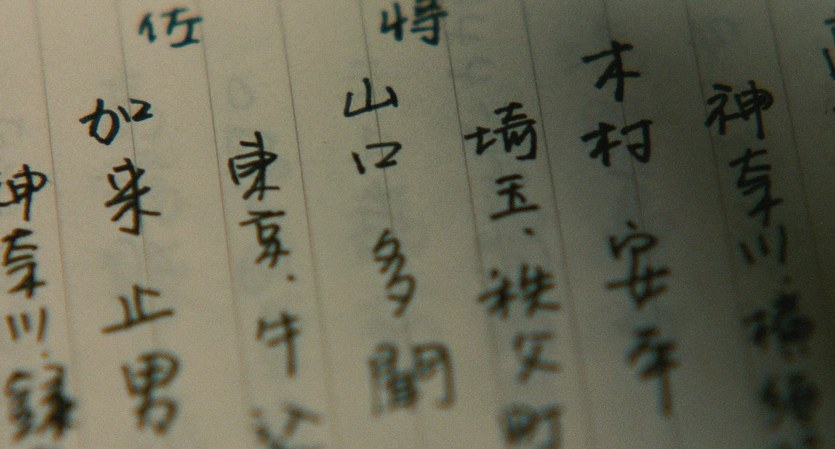 神奈川.横須
木村 安平
埼玉.秩父町
山口 多聞
将
東京.牛込
加来 止男
佐
神奈川.鎌